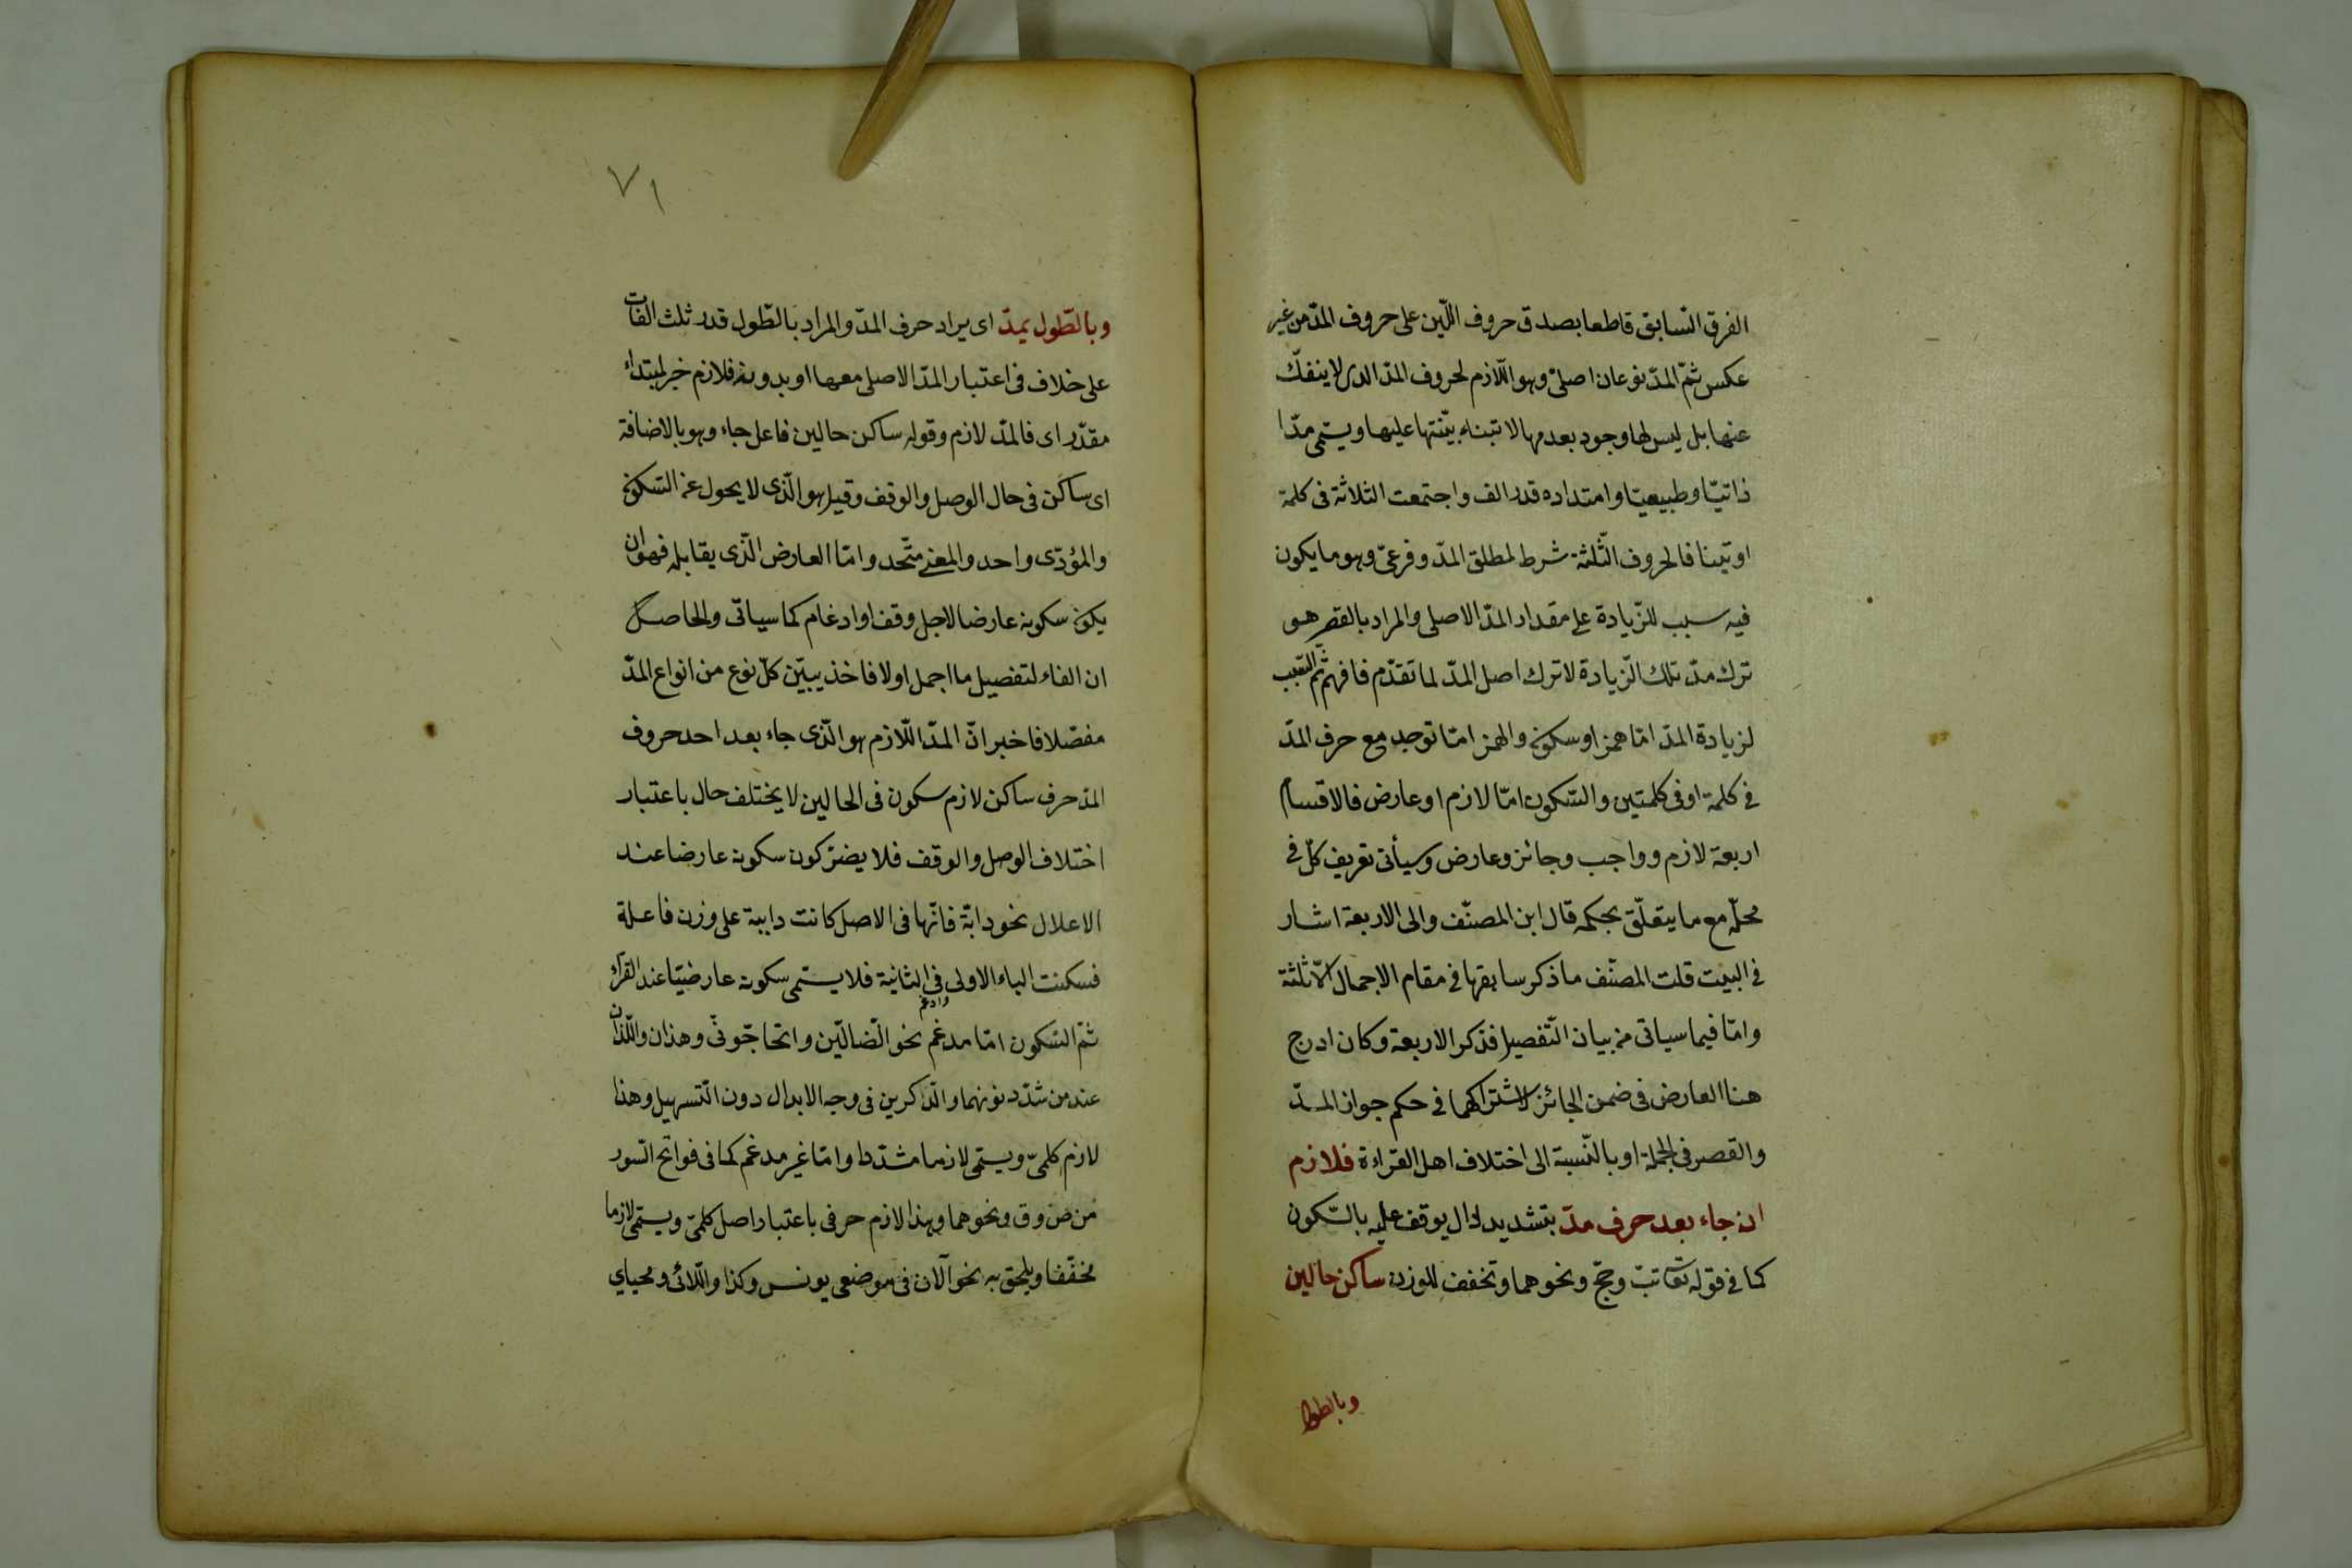 الفرق السابق قاطعا بصدق حروف اللّين على حروف المدّ من غير
عكس ثمّ المدّ نوعان اصليّ وهو اللّازم لحروف المدّ الذى لا ينفكّ
عنها بل ليس لها وجود بعدمها لا تبناء بنيتها عليها ويسمّى مدّا
ذاتيّا وطبيعيّا وامتداده قدر الف واجتمعت الثلاثة فى كلمة
اوتينا فالحروف الثّلثة شرط لمطلق المدّ وفرعىّ وهو ما يكون
فيه سبب للزّيادة على مقدار المدّ الاصلى والمراد بالقصر هو
ترك مدّ تلك الزّيادة لا ترك اصل المدّ لما تقدّم فافهم ثمّ السّبب
لزيادة المدّ امّا همز او سكون والهمز امّا توجد مع حرف المدّ
فى كلمة او فى كلمتين والسّكون امّا لازم او عارض فالاقسام
اربعة لازم وواجب وجائز وعارض وسيأتى تعريف كلّ فى
محلّه مع ما يتعلّق بحكمه قال ابن المصنّف والى الاربعة اشار
فى البيت قلت المصنّف ما ذكر سابقها فى مقام الاجمال الّا ثلثة
وامّا فيما سياتى من بيان التّفصيل فذكر الاربعة وكان ادرج
هنا العارض فى ضمن الجائز لاشتراكهما فى حكم جواز المدّ
والقصر فى الجملة او بالنّسبة الى اختلاف اهل القراءة فلازم
ان جاء بعد حرف مدّ بتشديد لدال يوقف عليه بالسّكون
كما فى قوله تعا تبّ وحجّ ونحوهما وتخفف للوزن ساكن حالين
وبالطول
٧١
وبالطّول يمدّ اى يراد حرف المدّ والمراد بالطّول قدر ثلث الفات
على خلاف فى اعتبار المدّ الاصلى معها او بدونه فلازم خبر لمبتداء
مقدّر اى فالمدّ لازم وقوله ساكن حالين فاعل جاء وهو بالاضافة
اى ساكن فى حال الوصل والوقف وقيل هو الّذى لا يحول عن السّكون
والمؤدّى واحد والمعنى متّحد وامّا العارض الّذى يقابله فهو ان
يكون سكونه عارضا لاجل وقف او ادغام كما سياتى والحاصل
ان الفاء لتفصيل ما اجمل اولا فاخذ يبيّن كلّ نوع من انواع المدّ
مفصّلا فاخبر انّ المدّ اللّازم هو الّذى جاء بعد احد حروف
المدّ حرف ساكن لازم سكون فى الحالين لا يختلف حال باعتبار
اختلاف الوصل والوقف فلا يضرّ كون سكونه عارضا عند
الاعلال نحو دابّة فانّها فى الاصل كانت داببة على وزن فاعلة
فسكنت الباء الاولى وادغم فى الثانية فلا يسمّى سكونه عارضيّا عند القرّاء
ثمّ السّكون امّا مدغم نحو الضّالّين واتحاجّونّى وهذان واللّذان
عند من شدّد نونهما والذّاكرين فى وجه الابدال دون التّسهيل وهذا
لازم كلمىّ ويسمّى لازما مشدّدا وامّا غير مدغم كما فى فواتح السّور
من ص وق ونحوهما وهذا لازم حرفى باعتبار اصل كلمىّ ويسمّى لازما
مخفّفا ويلحق به نحو آلان فى موضعى يونس وكذا واللّائى ومحياي